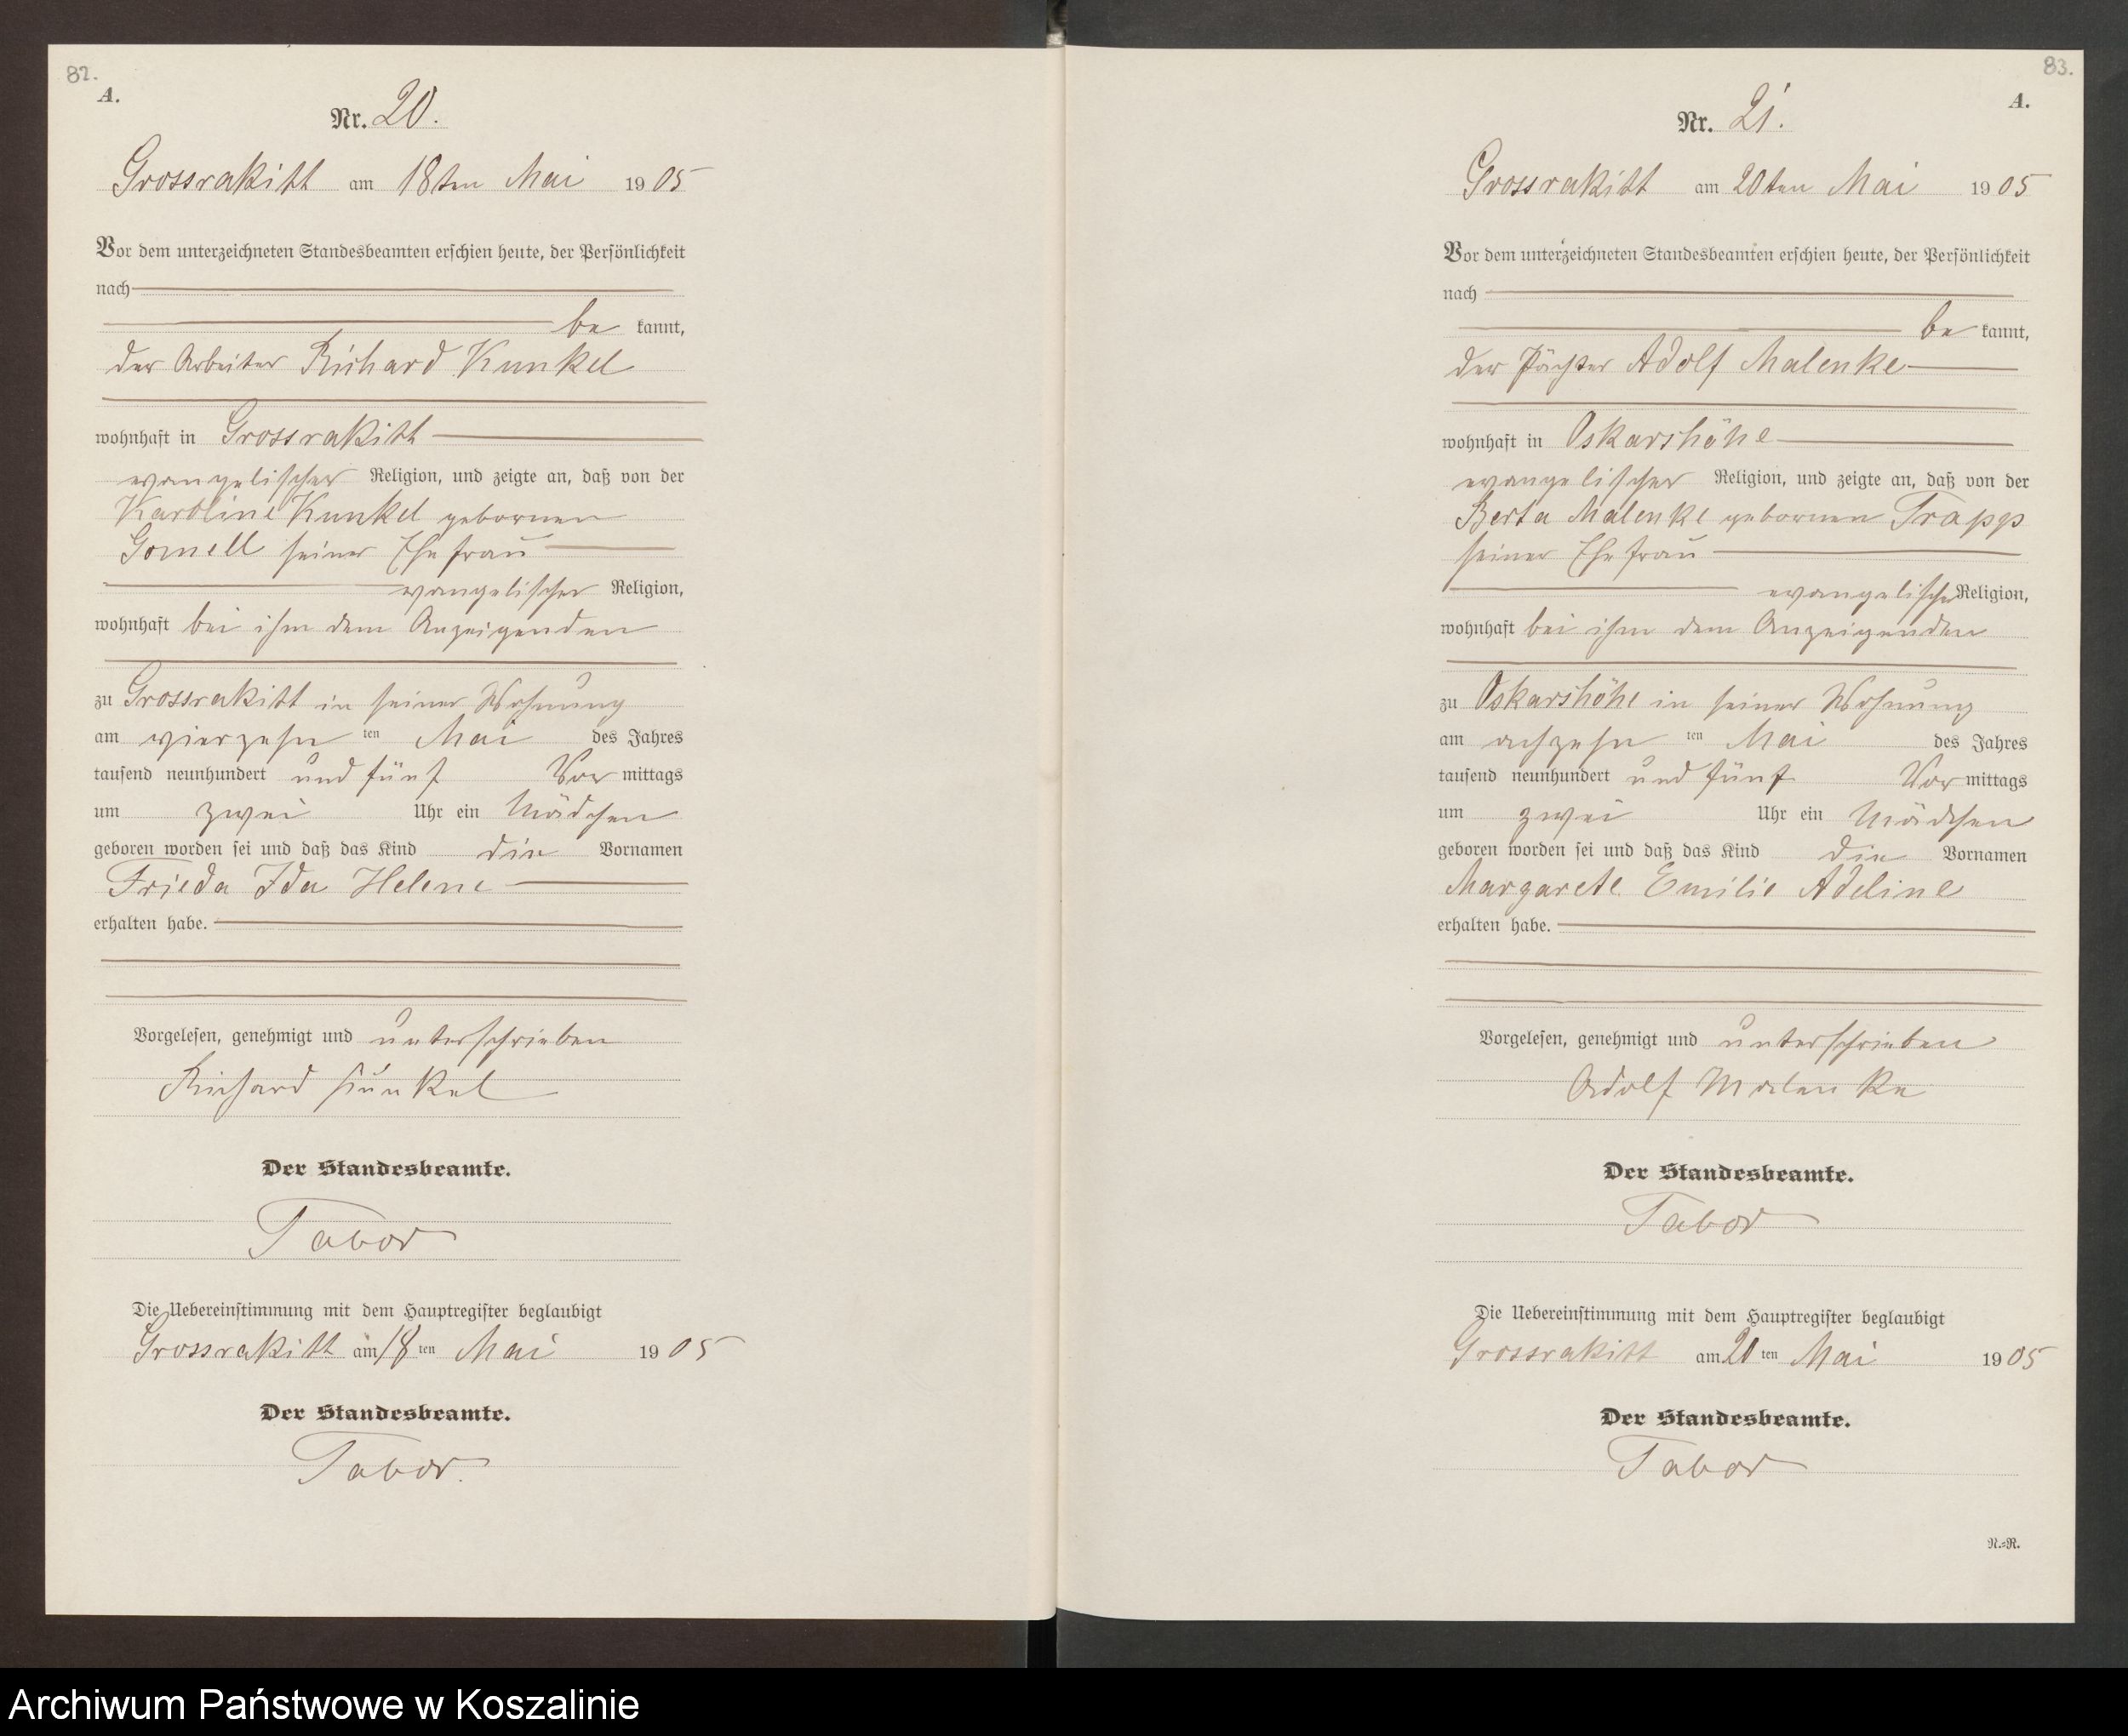 82.
A.
Nr. 20.
Grossrakitt am 18ten Mai 1905
Vor dem unterzeichneten Standesbeamten erschien heute, der Persönlichkeit
nach
be kannt,
der Arbeiter Richard Kunkel
wohnhaft in Grossrakitt
evangelischer Religion, und zeigte an, daß von der
Karoline Kunkel gebornen
seiner Ehefrau
evangelischer Religion,
wohnhaft bei ihm dem Anzeigenden
zu Grossrakitt in seiner Wohnung
am vierzehn ten Mai des Jahres
tausend neunhundert und fünf Vor mittags
um zwei Uhr ein Mädchen
geboren worden sei und daß das Kind die Vornamen
Frieda Ida Helene
erhalten habe.
Vorgelesen, genehmigt und unterschrieben
Richard Kunkel
Der Standesbeamte.
Tabor
Die Uebereinstimmung mit dem Hauptregister beglaubigt
Grossrakitt am 18 ten Mai 1905
Der Standesbeamte.
Tabor.
83.
A.
Nr. 21.
Grossrakitt am 20ten Mai 1905
Vor dem unterzeichneten Standesbeamten erschien heute, der Persönlichkeit
nach
be kannt,
der Pächter Adolf Malenke
wohnhaft in Oskarshöhe
evangelischer Religion, und zeigte an, daß von der
Berta Malenke gebornen Trapp
seiner Ehefrau
evangelischer Religion,
wohnhaft bei ihm dem Anzeigenden
zu Oskarshöhe in seiner Wohnung
am achzehn ten Mai des Jahres
tausend neunhundert und fünf Vor mittags
um zwei Uhr ein Mädchen
geboren worden sei und daß das Kind die Vornamen
Margarete Emilie Adeline
erhalten habe.
Vorgelesen, genehmigt und unterschrieben
Adolf Malenke
Der Standesbeamte.
Tabor
Die Uebereinstimmung mit dem Hauptregister beglaubigt
Grossrakitt am 20 ten Mai 1905
Der Standesbeamte.
Tabor
N.=R.
Archiwum Państwowe w Koszalinie